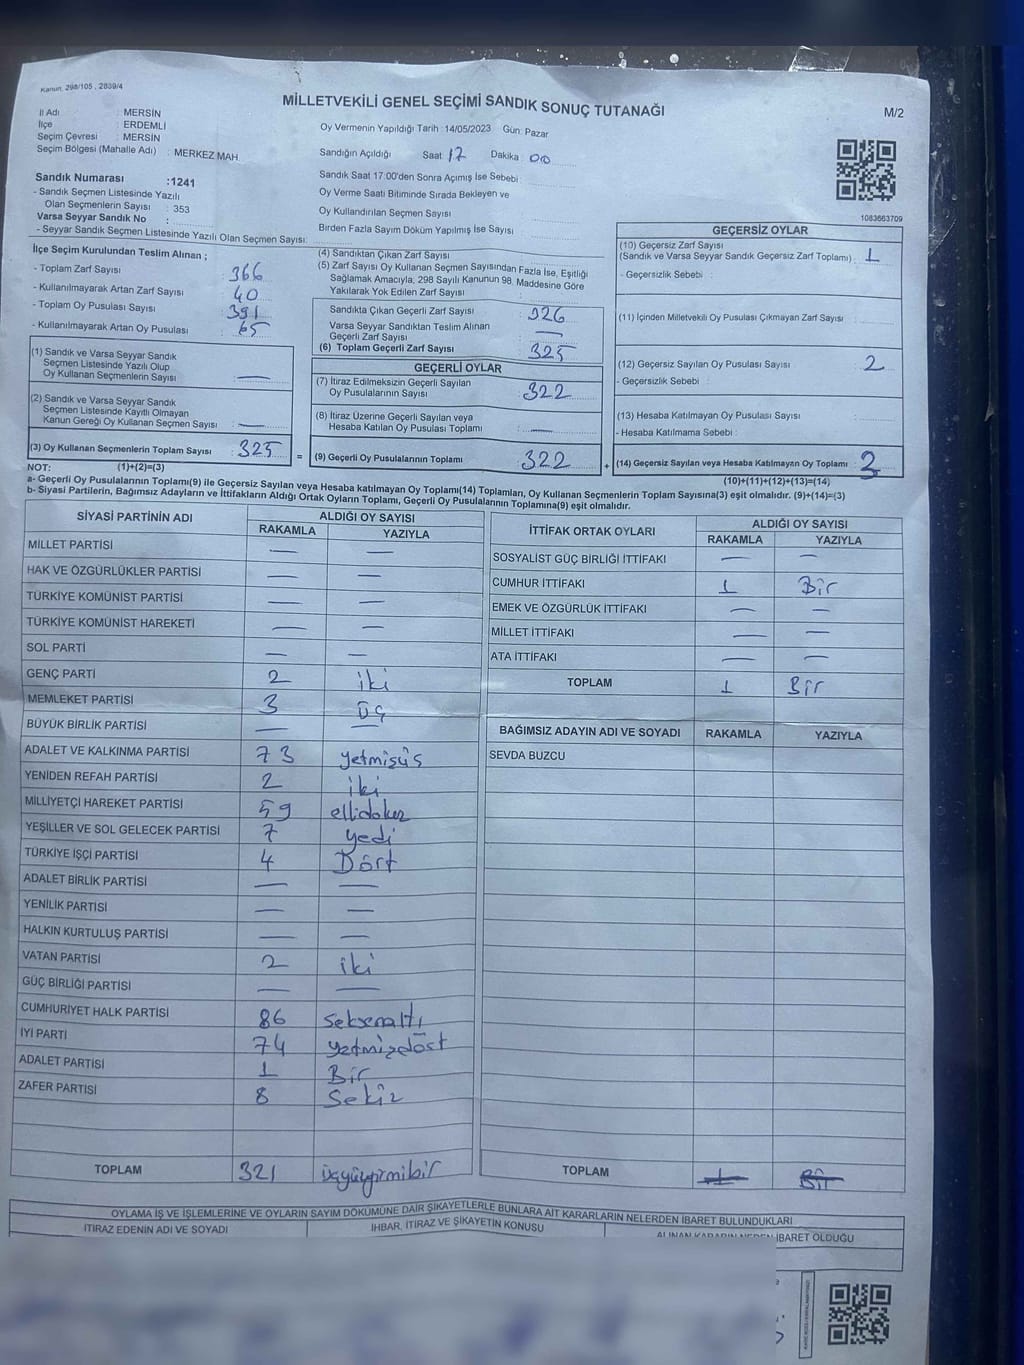 Kanun, 298/105 , 2839/4
MİLLETVEKİLİ GENEL SEÇİMİ SANDIK SONUÇ TUTANAĞI
M/2
İl Adı : MERSİN
İlçe : ERDEMLİ
Seçim Çevresi : MERSİN
Seçim Bölgesi (Mahalle Adı) : MERKEZ MAH
Sandık Numarası :1241
- Sandık Seçmen Listesinde Yazılı
Olan Seçmenlerin Sayısı : 353
Varsa Seyyar Sandık No :
- Seyyar Sandık Seçmen Listesinde Yazılı Olan Seçmen Sayısı:
Oy Vermenin Yapıldığı Tarih : 14/05/2023 Gün: Pazar
Sandığın Açıldığı Saat : 17 Dakika : 00
Sandık Saat 17:00'den Sonra Açımış İse Sebebi :
Oy Verme Saati Bitiminde Sırada Bekleyen ve
Oy Kullandırılan Seçmen Sayısı
Birden Fazla Sayım Döküm Yapılmış İse Sayısı
1083663709
İlçe Seçim Kurulundan Teslim Alınan ;
- Toplam Zarf Sayısı : 366
- Kullanılmayarak Artan Zarf Sayısı : 40
- Toplam Oy Pusulası Sayısı : 391
- Kullanılmayarak Artan Oy Pusulası : 65
(1) Sandık ve Varsa Seyyar Sandık
Seçmen Listesinde Yazılı Olup
Oy Kullanan Seçmenlerin Sayısı : —
(2) Sandık ve Varsa Seyyar Sandık
Seçmen Listesinde Kayıtlı Olmayan
Kanun Gereği Oy Kullanan Seçmen Sayısı : —
(3) Oy Kullanan Seçmenlerin Toplam Sayısı : 325
(4) Sandıktan Çıkan Zarf Sayısı :
(5) Zarf Sayısı Oy Kullanan Seçmen Sayısından Fazla İse, Eşitliği
Sağlamak Amacıyla, 298 Sayılı Kanunun 98. Maddesine Göre
Yakılarak Yok Edilen Zarf Sayısı :
Sandıkta Çıkan Geçerli Zarf Sayısı : 326
Varsa Seyyar Sandıktan Teslim Alınan
Geçerli Zarf Sayısı : —
(6) Toplam Geçerli Zarf Sayısı : 325
GEÇERLİ OYLAR
(7) İtiraz Edilmeksizin Geçerli Sayılan
Oy Pusulalarının Sayısı : 322
(8) İtiraz Üzerine Geçerli Sayılan veya
Hesaba Katılan Oy Pusulası Toplamı : —
= (9) Geçerli Oy Pusulalarının Toplamı : 322
GEÇERSİZ OYLAR
(10) Geçersiz Zarf Sayısı
(Sandık ve Varsa Seyyar Sandık Geçersiz Zarf Toplamı) : 1
- Geçersizlik Sebebi :
(11) İçinden Milletvekili Oy Pusulası Çıkmayan Zarf Sayısı :
(12) Geçersiz Sayılan Oy Pusulası Sayısı : 2
- Geçersizlik Sebebi :
(13) Hesaba Katılmayan Oy Pusulası Sayısı :
- Hesaba Katılmama Sebebi :
+ (14) Geçersiz Sayılan veya Hesaba Katılmayan Oy Toplamı :
NOT: (1)+(2)=(3)
(10)+(11)+(12)+(13)=(14)
a- Geçerli Oy Pusulalarının Toplamı(9) ile Geçersiz Sayılan veya Hesaba katılmayan Oy Toplamı(14) Toplamları, Oy Kullanan Seçmenlerin Toplam Sayısına(3) eşit olmalıdır. (9)+(14)=(3)
b- Siyasi Partilerin, Bağımsız Adayların ve İttifakların Aldığı Ortak Oyların Toplamı, Geçerli Oy Pusulalarının Toplamına(9) eşit olmalıdır.
SİYASİ PARTİNİN ADI ALDIĞI OY SAYISI
RAKAMLA YAZIYLA
MİLLET PARTİSİ — —
HAK VE ÖZGÜRLÜKLER PARTİSİ — —
TÜRKİYE KOMÜNİST PARTİSİ — —
TÜRKİYE KOMÜNİST HAREKETİ — —
SOL PARTİ — —
GENÇ PARTİ 2 iki
MEMLEKET PARTİSİ 3 üç
BÜYÜK BİRLİK PARTİSİ — —
ADALET VE KALKINMA PARTİSİ 73 yetmişüs
YENİDEN REFAH PARTİSİ 2 iki
MİLLİYETÇİ HAREKET PARTİSİ 59 ellidokuz
YEŞİLLER VE SOL GELECEK PARTİSİ 7 yedi
TÜRKİYE İŞÇİ PARTİSİ 4 Dört
ADALET BİRLİK PARTİSİ — —
YENİLİK PARTİSİ — —
HALKIN KURTULUŞ PARTİSİ — —
VATAN PARTİSİ 2 iki
GÜÇ BİRLİĞİ PARTİSİ — —
CUMHURİYET HALK PARTİSİ 86 Seksenaltı
İYİ PARTİ 74 yetmişdört
ADALET PARTİSİ 1 Bir
ZAFER PARTİSİ 8 Sekiz
TOPLAM 321 üçyüzyirmibir
İTTİFAK ORTAK OYLARI ALDIĞI OY SAYISI
RAKAMLA YAZIYLA
SOSYALİST GÜÇ BİRLİĞİ İTTİFAKI — —
CUMHUR İTTİFAKI 1 Bir
EMEK VE ÖZGÜRLÜK İTTİFAKI — —
MİLLET İTTİFAKI — —
ATA İTTİFAKI — —
TOPLAM 1 Bir
BAĞIMSIZ ADAYIN ADI VE SOYADI RAKAMLA YAZIYLA
SEVDA BUZCU
TOPLAM 1 Bir
OYLAMA İŞ VE İŞLEMLERİNE VE OYLARIN SAYIM DÖKÜMÜNE DAİR ŞİKAYETLERLE BUNLARA AİT KARARLARIN NELERDEN İBARET BULUNDUKLARI
İTİRAZ EDENİN ADI VE SOYADI İHBAR, İTİRAZ VE ŞİKAYETİN KONUSU ALINAN KARARIN NEDEN İBARET OLDUĞU